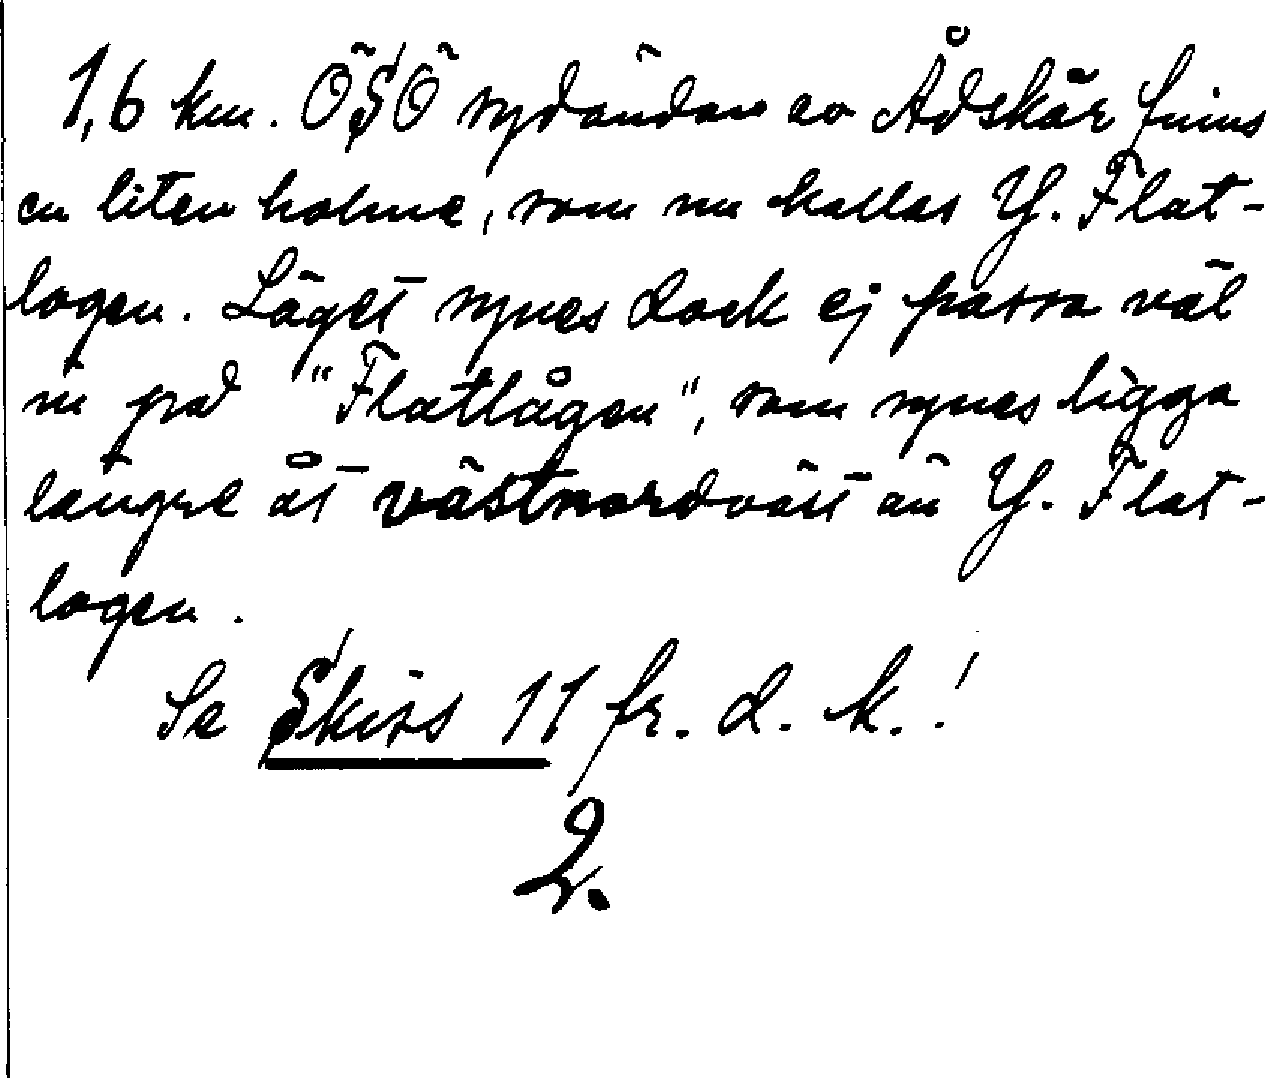 1,6 km. ÖSÖ sydändan av Ådskär finns
en liten holme, som nu kallas Y. Flat-
logen. Läget synes dock ej passa väl
in på "Flatlågen", som synes ligga
längre åt västnordväst än Y. Flat-
logen.
Se Skiss 11 fr. d. k.!
2.